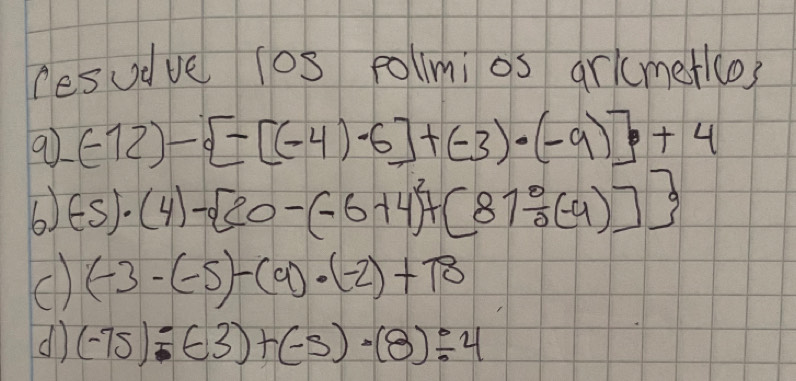 resuelve los polimios aricmeticos
a) (-12) - {- [(-4) · 6] + (-3) · (-9)]} + 4
b) (-5) · (4) - {20 - (-6 + 4)² + [81 ÷ (-9)]}
c) (-3 - (-5) - (9) · (-2) + 18
d) (-15) ÷ (-3) + (-5) · (8) ÷ 4